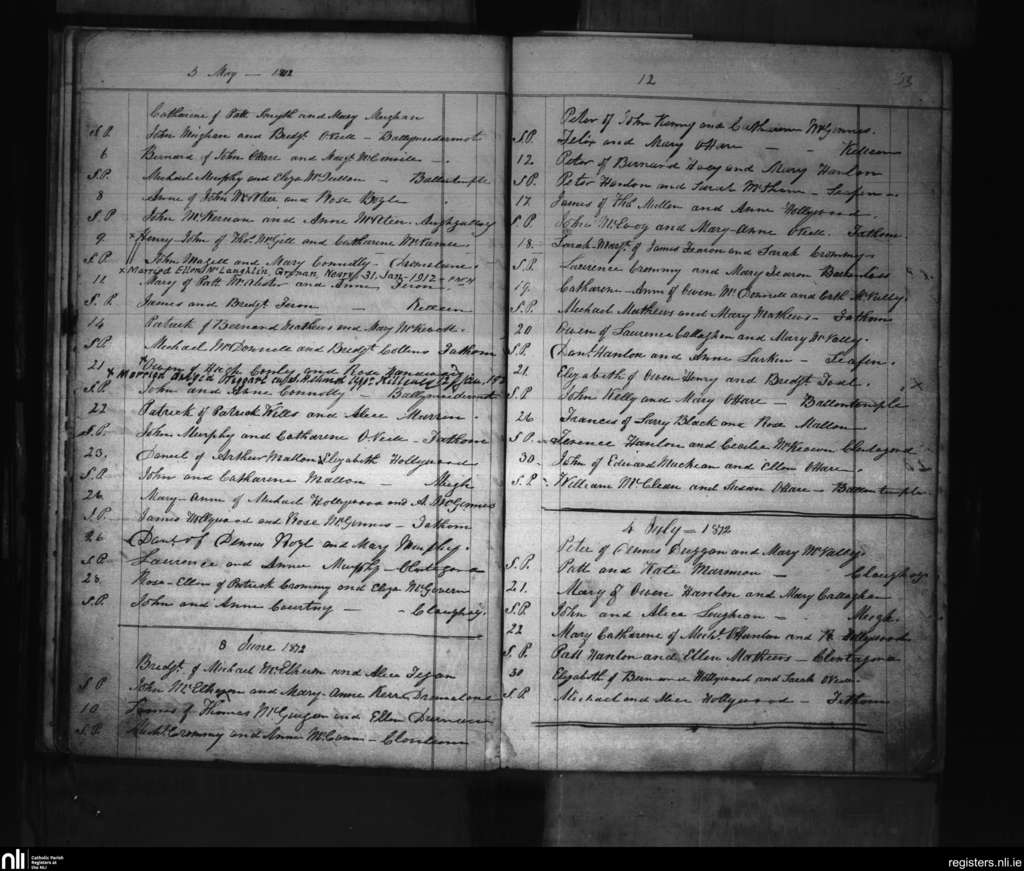 3 May — 1872
Catharine of Patt Smyth and Mary Meighan
S.P. John Meighan and Bridgt O'Neill — Ballymacdermot
6 Bernard of John O'Hare and Margt McConville
S.P. Michael Murphy and Eliza — Ballintemple
8 Anne of John McAteer and Rose Boyle
S.P. John McKernan and Anne McAteer
9 x Henry John of Thos McGill and Catharine
S.P. John Magill and Mary Connolly —
x Married Ellen McLaughlin, Newry 31. Jan — 1912
11 Mary of Patt McAlister and Anne Feron
S.P. James and Bridgt Feron — Killeen
14 Patrick of Bernard Mathews and Mary
S.P. Michael McDonnell and Bridgt Collins Fathom
21 x Owen of Hugh Conly and Rose
x Married
S.P. John and Anne Connolly — Ballymacdermot
22 Patrick of Patrick Wills and Alice Murren
S.P. John Murphy and Catharine O'Neill — Fathom
23 Daniel of Arthur Mallon Elizabeth Hollywood
S.P. John and Catharine Mallon — Meigh
26 Mary-Anne of Michael Hollywood and A. McGinnes
S.P. James Hollywood and Rose McGinnes — Fathom
26 Danl of Dennis Boyle and Mary Murphy
S.P. Laurence and Annie Murphy — Clontagora
28 Rose-Ellen of Patrick Crommy and Eliza McGovern
S.P. John and Anne Courtny — Cloughog
8 June 1872
Bridgt of Michael McElheron and Alice Fegan
S.P. John McElheron and Mary-Anne Kerr
10 James of Thomas McGuigan and Ellen
S.P. Michl Crommy and Anne McCann —
12
53
Peter of John Kenny and Catharine McGinnes.
S.P. Felix and Mary O'Hare — Killeen
12. Peter of Bernard and Mary Hanlon
S.P. Peter Hanlon and Sarah — Seafin
17. James of Thos Mullen and Anne Hollywood
S.P. John McEvoy and Mary-Anne O'Neill. Fathom
18. Sarah Margt of James Fearon and Sarah Crommy
S.P. Laurence Crommy and Mary Fearon
19. Catharine-Anne of Owen McDonnell and Cath McNally
S.P. Michael Mathews and Mary Mathews — Fathom
20 Owen of Laurence Callaghan and Mary McNally
S.P. Danl Hanlon and Anne Larkin — Seafin
21. Elizabeth of Owen Henry and Bridgt Toal x
S.P. John Kelly and Mary O'Hare — Ballintemple
26. Frances of Larry Black and Rose Mallon
S.P. Terence Hanlon and Cecilia McKeown Clontagora
30. John of Edward Meehan and Ellen O'Hare
S.P. William McClean and Susan O'Hare — Ballintemple
4 July — 1872
Peter of Dennis Duggan and Mary McNally
S.P. Patt and Kate Marmion — Cloughog
21. Mary of Owen Hanlon and Mary Callaghan
S.P. John and Alice Loughran — Meigh
22 Mary Catharine of Michl O'Hanlon and Hollywood
S.P. Patt Hanlon and Ellen Mathews — Clontagora
30 Elizabeth of Hollywood and Sarah
S.P. Michael and Alice Hollywood — Fathom
nli Catholic Parish Registers at the NLI
registers.nli.ie